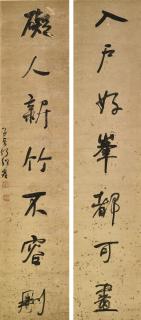 入户好峯都可畫
礙人新竹不容刪